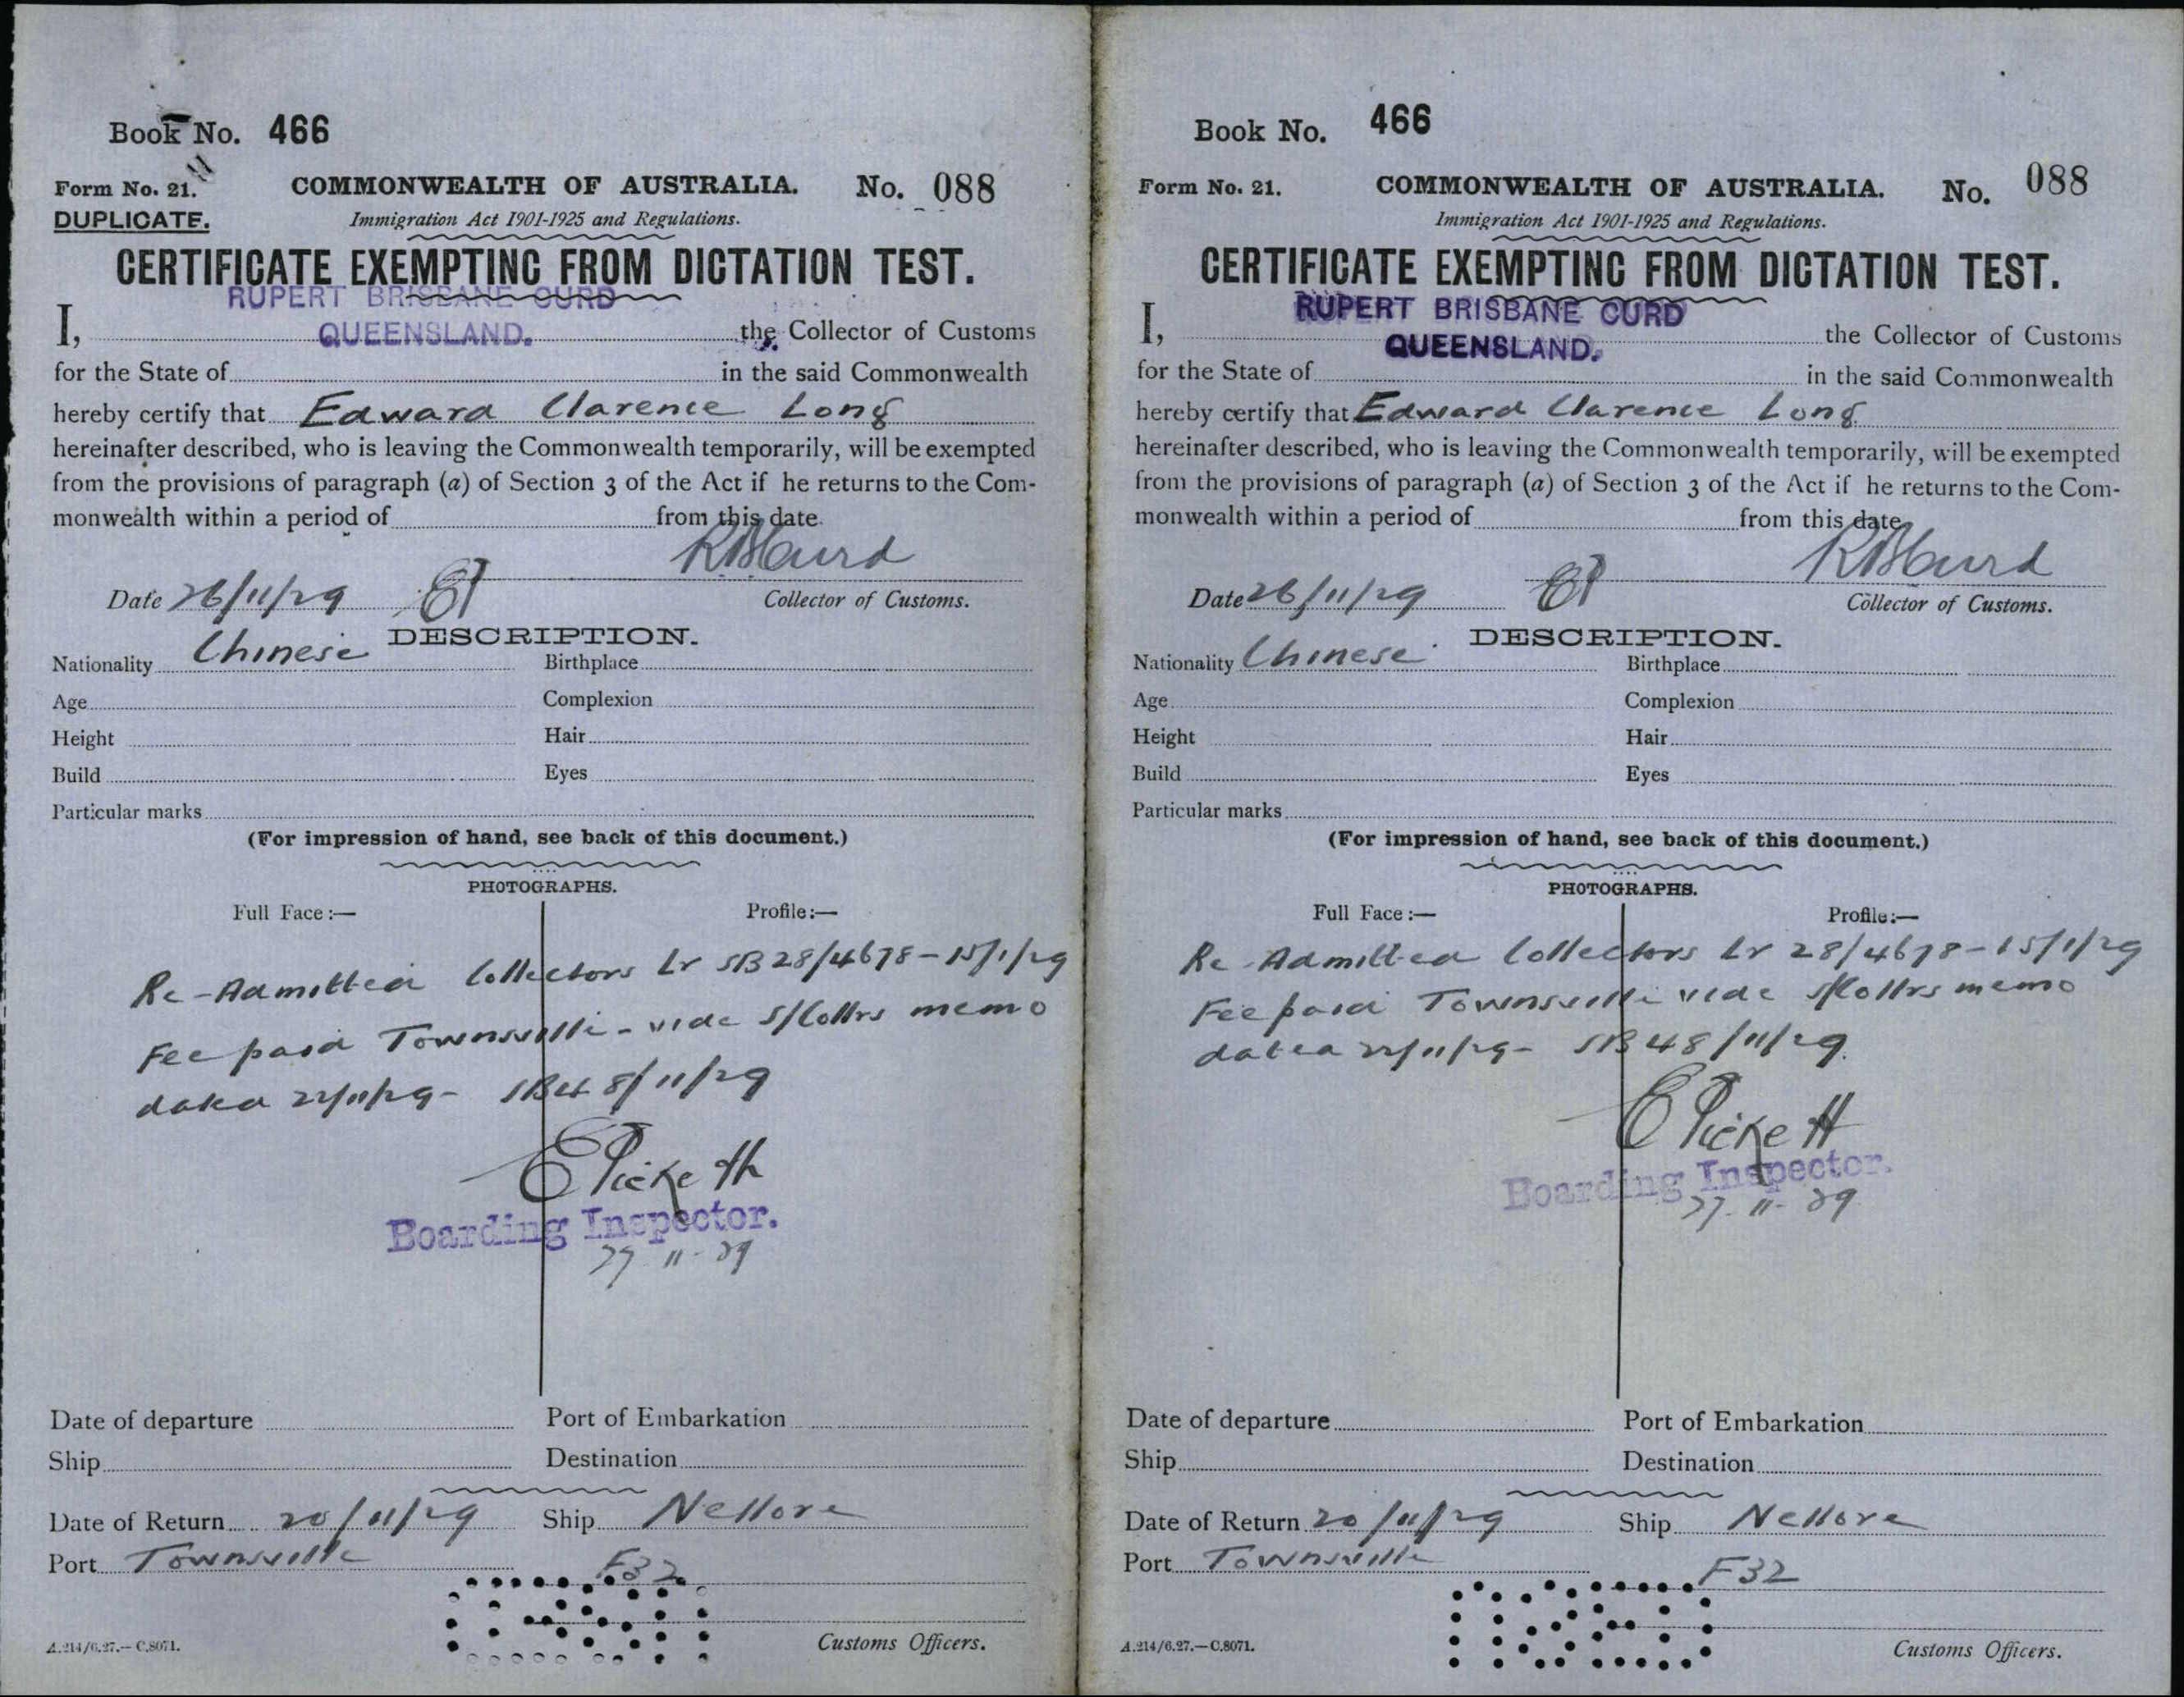 Book No. 466
Form No. 21.
COMMONWEALTH OF AUSTRALIA.
No. 088
DUPLICATE.
Immigration Act 1901-1925 and Regulations.
CERTIFICATE EXEMPTING FROM DICTATION TEST.
RUPERT BRISBANE CURD
I, QUEENSLAND. the Collector of Customs
for the State of in the said Commonwealth
hereby certify that Edward Clarence Long
hereinafter described, who is leaving the Commonwealth temporarily, will be exempted
from the provisions of paragraph (a) of Section 3 of the Act if he returns to the Com-
monwealth within a period of from this date.
RBCurd
Date 26/11/29
Collector of Customs.
DESCRIPTION.
Nationality Chinese Birthplace
Age Complexion
Height Hair
Build Eyes
Particular marks
(For impression of hand, see back of this document.)
PHOTOGRAPHS.
Full Face:— Profile:—
Re-Admitted Collectors Lr SB28/4678-15/1/29
Fee paid Townsville - vide S/Collrs memo
dated 22/11/29- SB48/11/29
E Pickett
Boarding Inspector.
27 11-29
Date of departure Port of Embarkation
Ship Destination
Date of Return 20/11/29 Ship Nellore
Port Townsville F32
A.214/6.27.—C.8071.
Customs Officers.
Book No. 466
Form No. 21.
COMMONWEALTH OF AUSTRALIA.
No. 088
Immigration Act 1901-1925 and Regulations.
CERTIFICATE EXEMPTING FROM DICTATION TEST.
RUPERT BRISBANE CURD
I, QUEENSLAND. the Collector of Customs
for the State of in the said Commonwealth
hereby certify that Edward Clarence Long
hereinafter described, who is leaving the Commonwealth temporarily, will be exempted
from the provisions of paragraph (a) of Section 3 of the Act if he returns to the Com-
monwealth within a period of from this date
RBCurd
Date 26/11/29
Collector of Customs.
DESCRIPTION.
Nationality Chinese Birthplace
Age Complexion
Height Hair
Build Eyes
Particular marks
(For impression of hand, see back of this document.)
PHOTOGRAPHS.
Full Face:— Profile:—
Re-Admitted Collectors Lr 28/4678-15/1/29
Fee paid Townsville vide S/Collrs memo
dated 22/11/29- SB48/11/29.
E Pickett
Boarding Inspector.
27-11-29
Date of departure Port of Embarkation
Ship Destination
Date of Return 20/11/29 Ship Nellore
Port Townsville F32
A.214/6.27.—C.8071.
Customs Officers.